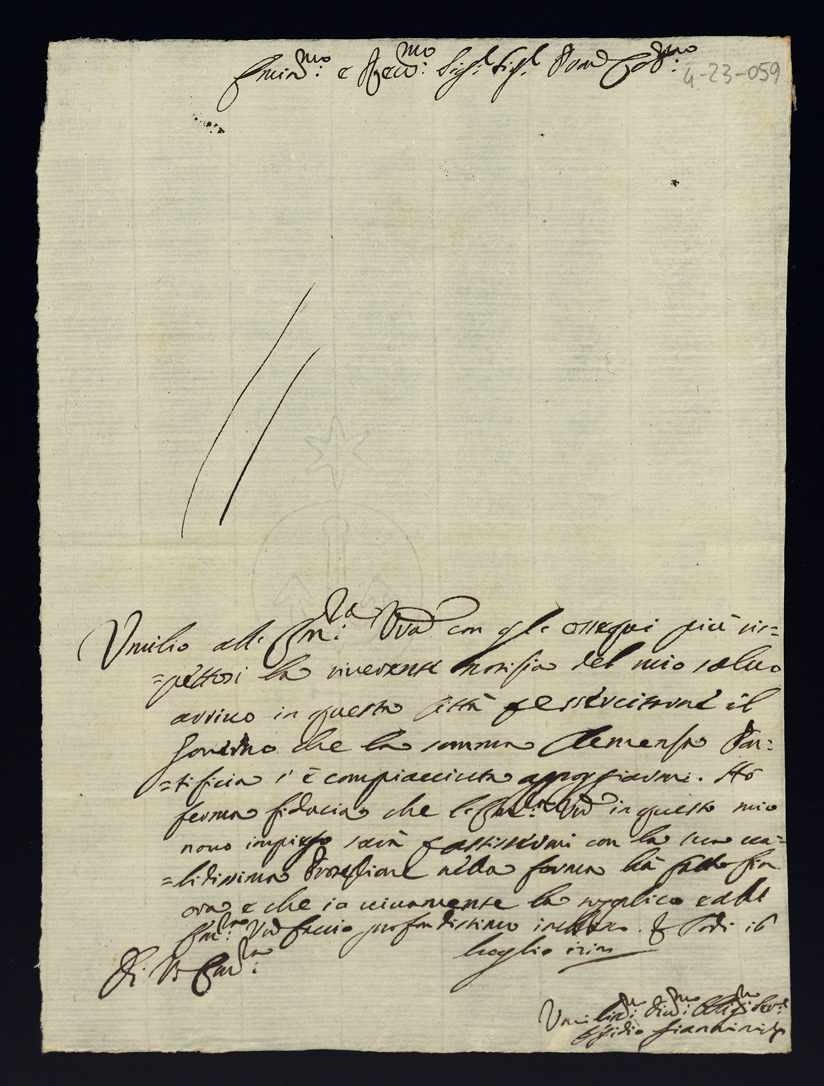 Emin.mo e Rev.mo Sig.r Sig.r Pron Col.mo
4-23-059
Umilio all' Em.za Vra con gl' ossequi più ris=
=pettosi la riverente notizia del mio salvo
arrivo in questa Città per esercitarne il
Governo che la somma Clemenza Pon=
=tificia s'è compiacciuta appoggiarmi. Hò
ferma fiducia che l'Em.za Vra in questo mio
novo impiego sarà per assistermi con la sua va=
=lidissima Protezione nella forma hà fatto fin
ora e che io vivamente la supplico e all'
Em.za Vra faccio profondissimo inchino. Todi 16
luglio
Di V. Em.za
Umiliss.mo Div.mo Obblig.mo Ser.e
Egidio